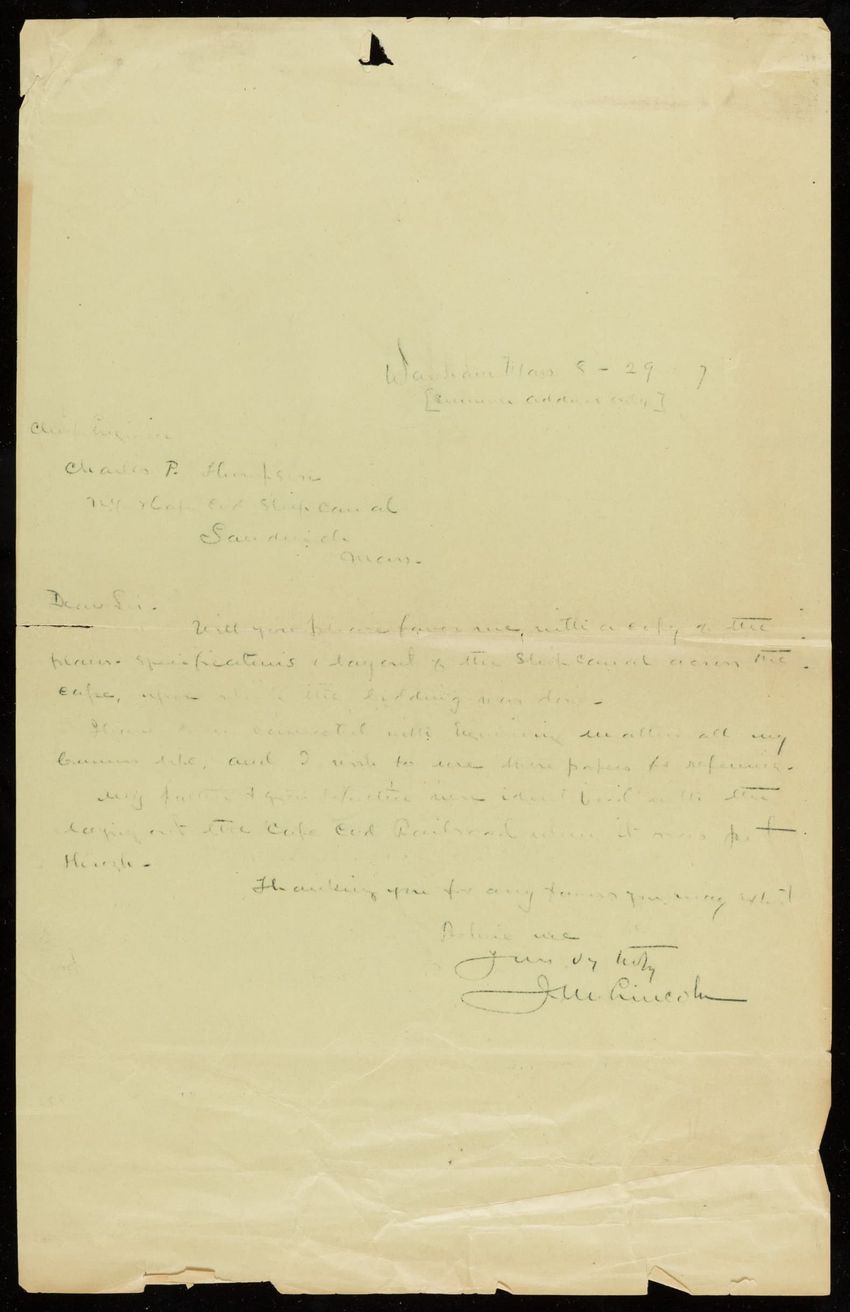 Wareham Mass 8-29 7
[Summer address only]
Chief Engineer
Charles P. Thompson
N.Y. Cape Cod Ship Canal
Sandwich
Mass.
Dear Sir.
Will you please favor me, with a copy of the
plans. specifications & layout of the Ship Canal across the
cape, upon the bidding was done.
I have been connected with Engineering matters all my
business life, and I wish to use these papers for reference.
My father & grandfather were identified with the
laying out the Cape Cod Railroad when it was put
through.
Thanking you for any favors you may extend
Believe me
Yours vy truly
J.M. Lincoln